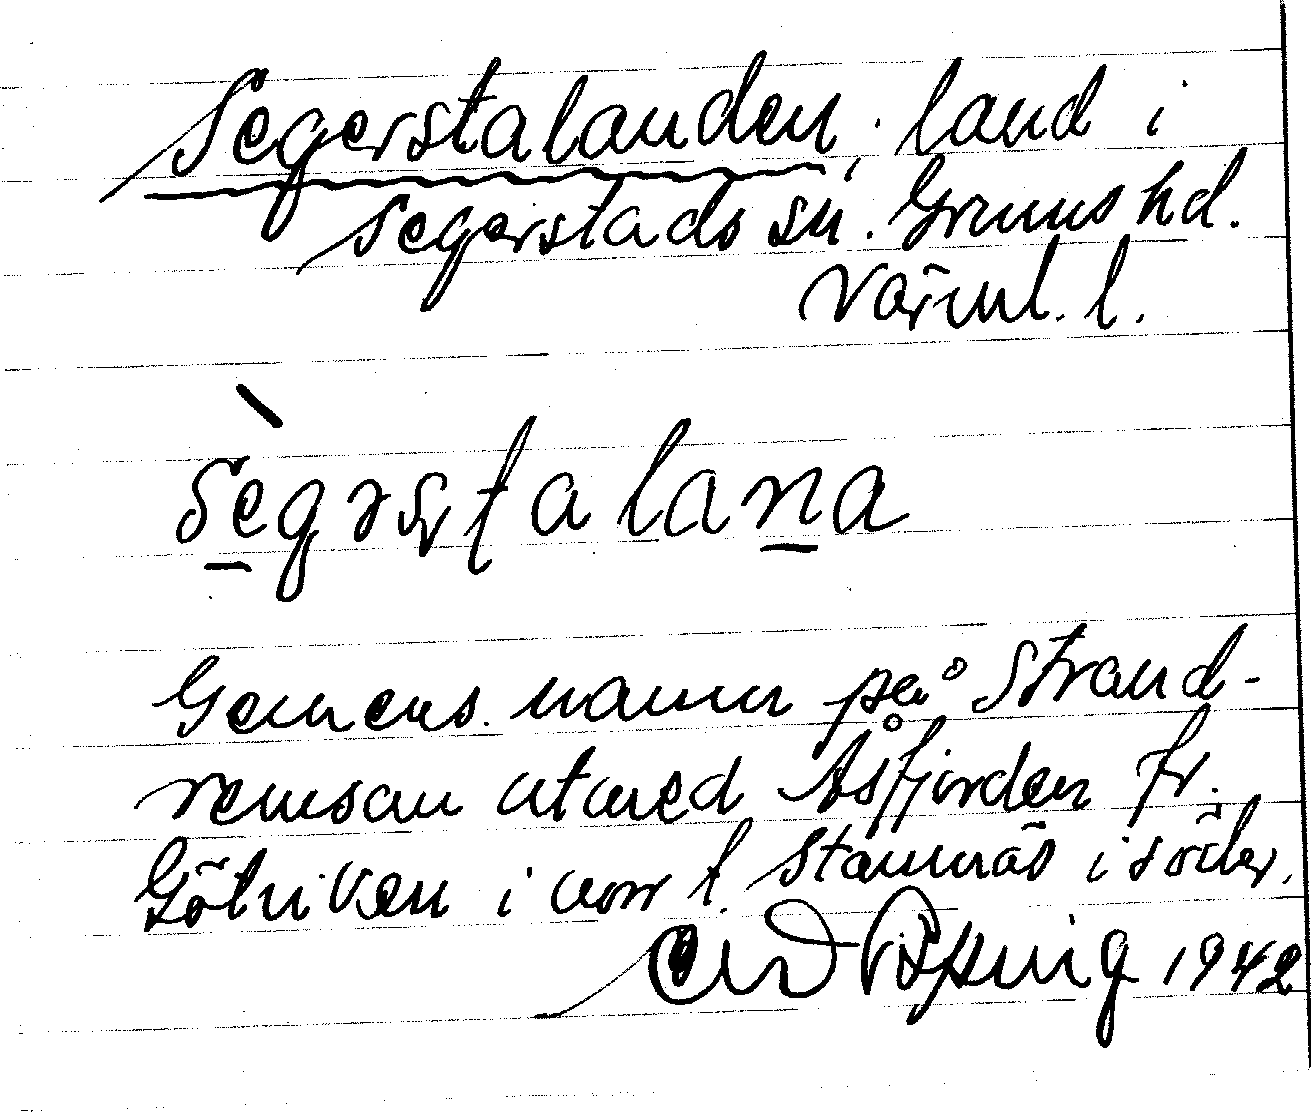 Segerstalanden, land i
Segerstads sn. Grums hd.
Värml. l.
segərstalana
Gemens. namn på Strand-
remsan utmed Åsfjorden fr.
Götviken i norr t. Stamnäs i söder.
1942